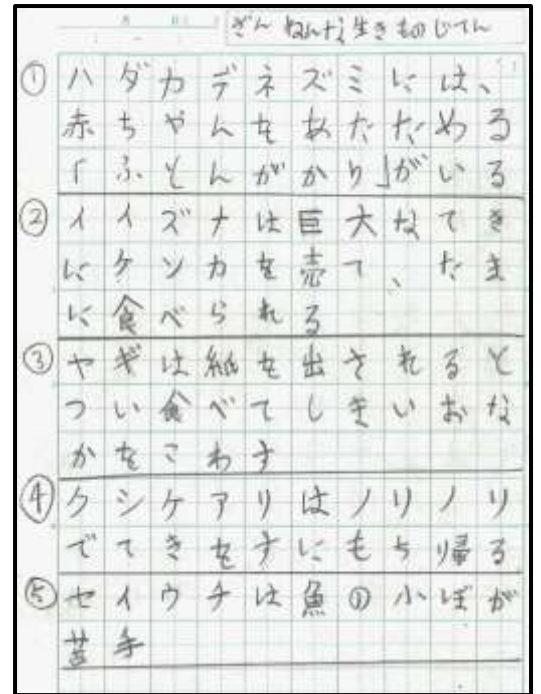 ざんねんな生きものじてん
① ハダカデネズミには、
赤ちゃんをあたためる
「ふとんがかり」がいる
② イイズナは巨大なてき
にケンカを売て、たま
に食べられる
③ ヤギは紙を出されると
つい食べてしまいおな
かをこわす
④ クシケアリはノリノリ
でてきをすにもち帰る
⑤ セイウチは魚の小ぼが
苦手